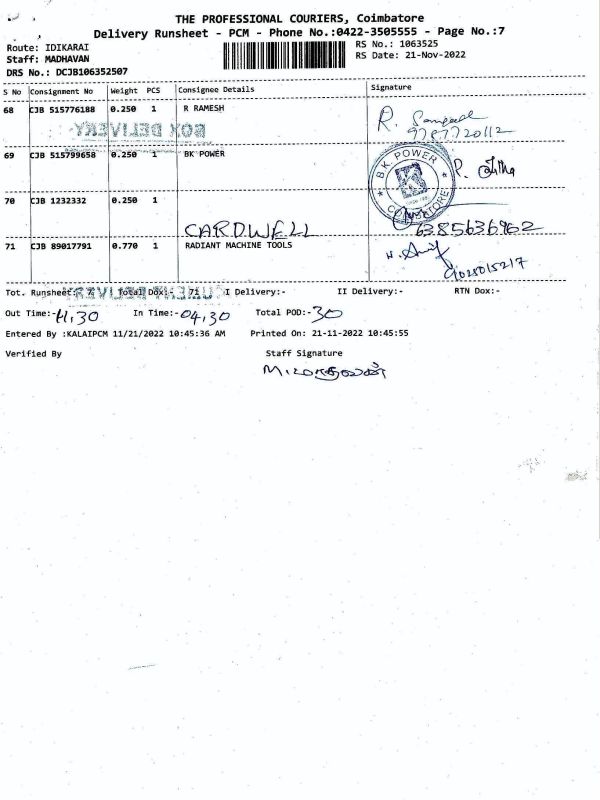 THE PROFESSIONAL COURIERS, Coimbatore
Delivery Runsheet - PCM - Phone No.:0422-3505555 - Page No.:7
Route: IDIKARAI
RS No.: 1063525
Staff: MADHAVAN
RS Date: 21-Nov-2022
DRS No.: DCJB106352507
S No Consignment No Weight PCS Consignee Details Signature
68 CJB 515776188 0.250 1 R RAMESH R.
9787720112
BOX DELIVERY
69 CJB 515799658 0.250 1 BK POWER
BK POWER
COIMBATORE
70 CJB 1232332 0.250 1
CARDWELL 6385636962
71 CJB 89017791 0.770 1 RADIANT MACHINE TOOLS
Tot. Runsheet: 7 Total Dox:- 71 I Delivery:- II Delivery:- RTN Dox:-
Out Time:- 11,30 In Time:- 04,30 Total POD:- 30
Entered By :KALAIPCM 11/21/2022 10:45:36 AM Printed On: 21-11-2022 10:45:55
Verified By Staff Signature